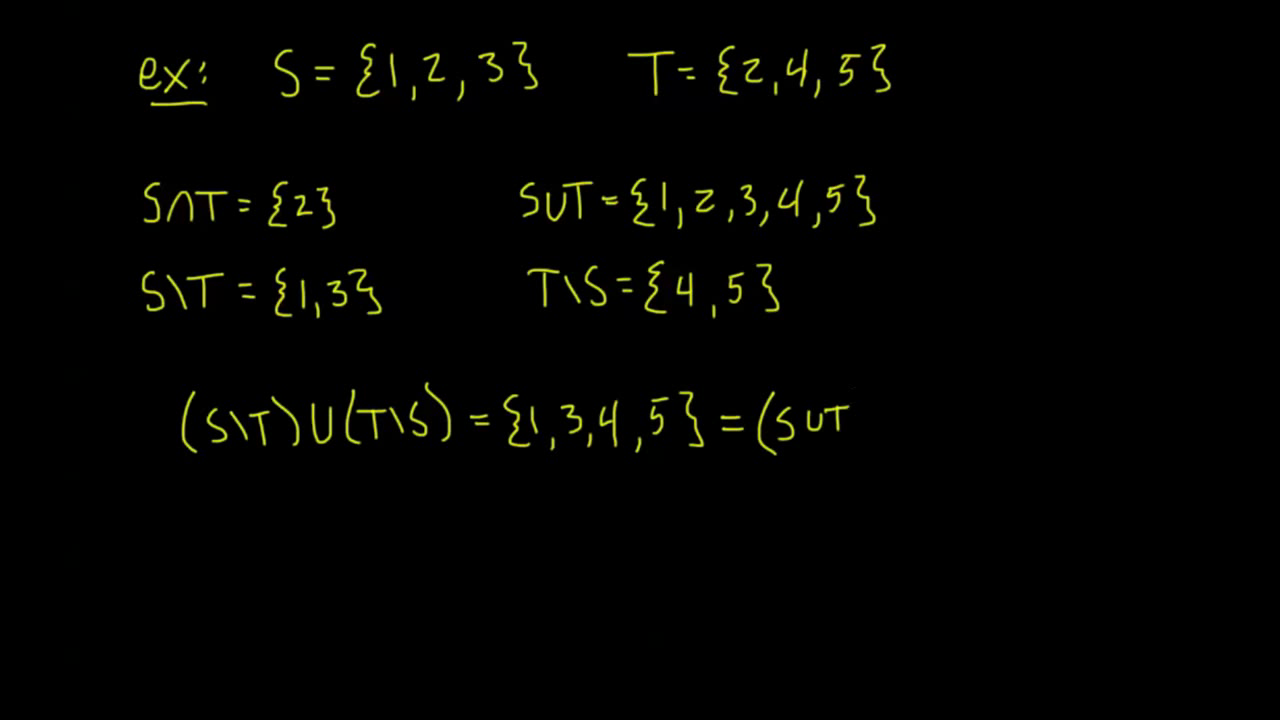 ex: S = {1, 2, 3} T = {2, 4, 5}
S∩T = {2} S∪T = {1, 2, 3, 4, 5}
S\T = {1, 3} T\S = {4, 5}
(S\T)∪(T\S) = {1, 3, 4, 5} = (S∪T